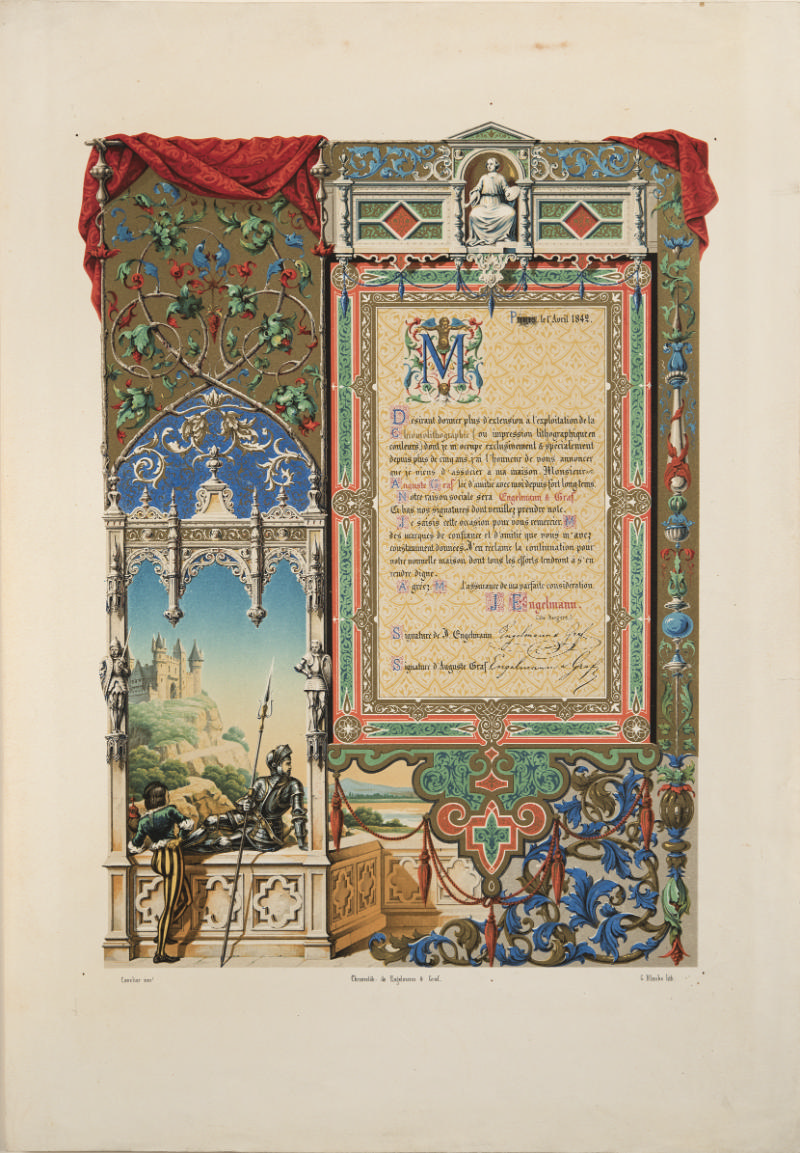 Paris, le 1 Avril 1842.
M
Désirant donner plus d'extension à l'exploitation de la
Chromolithographie (ou impression lithographique en
couleurs) dont je m'occupe exclusivement & spécialement
depuis plus de cinq ans, j'ai l'honneur de vous annoncer
que je viens d'associer a ma maison Monsieur
Auguste Graf lié d'amitié avec moi depuis fort long-tems.
Notre raison sociale sera Engelmann & Graf.
Ci-bas nos signatures dont veuillez prendre note.
Je saisis cette occasion pour vous remercier, M
des marques de confiance et d'amitié que vous m'avez
constamment données. J'en réclame la continuation pour
notre nouvelle maison dont tous les efforts tendront a s'en
rendre digne.
Agréez M l'assurance de ma parfaite considération.
J. Engelmann.
Signature de J. Engelmann Engelmann & Graf
Signature d'Auguste Graf Engelmann & Graf
Chromolith. de Engelmann & Graf.
lith.